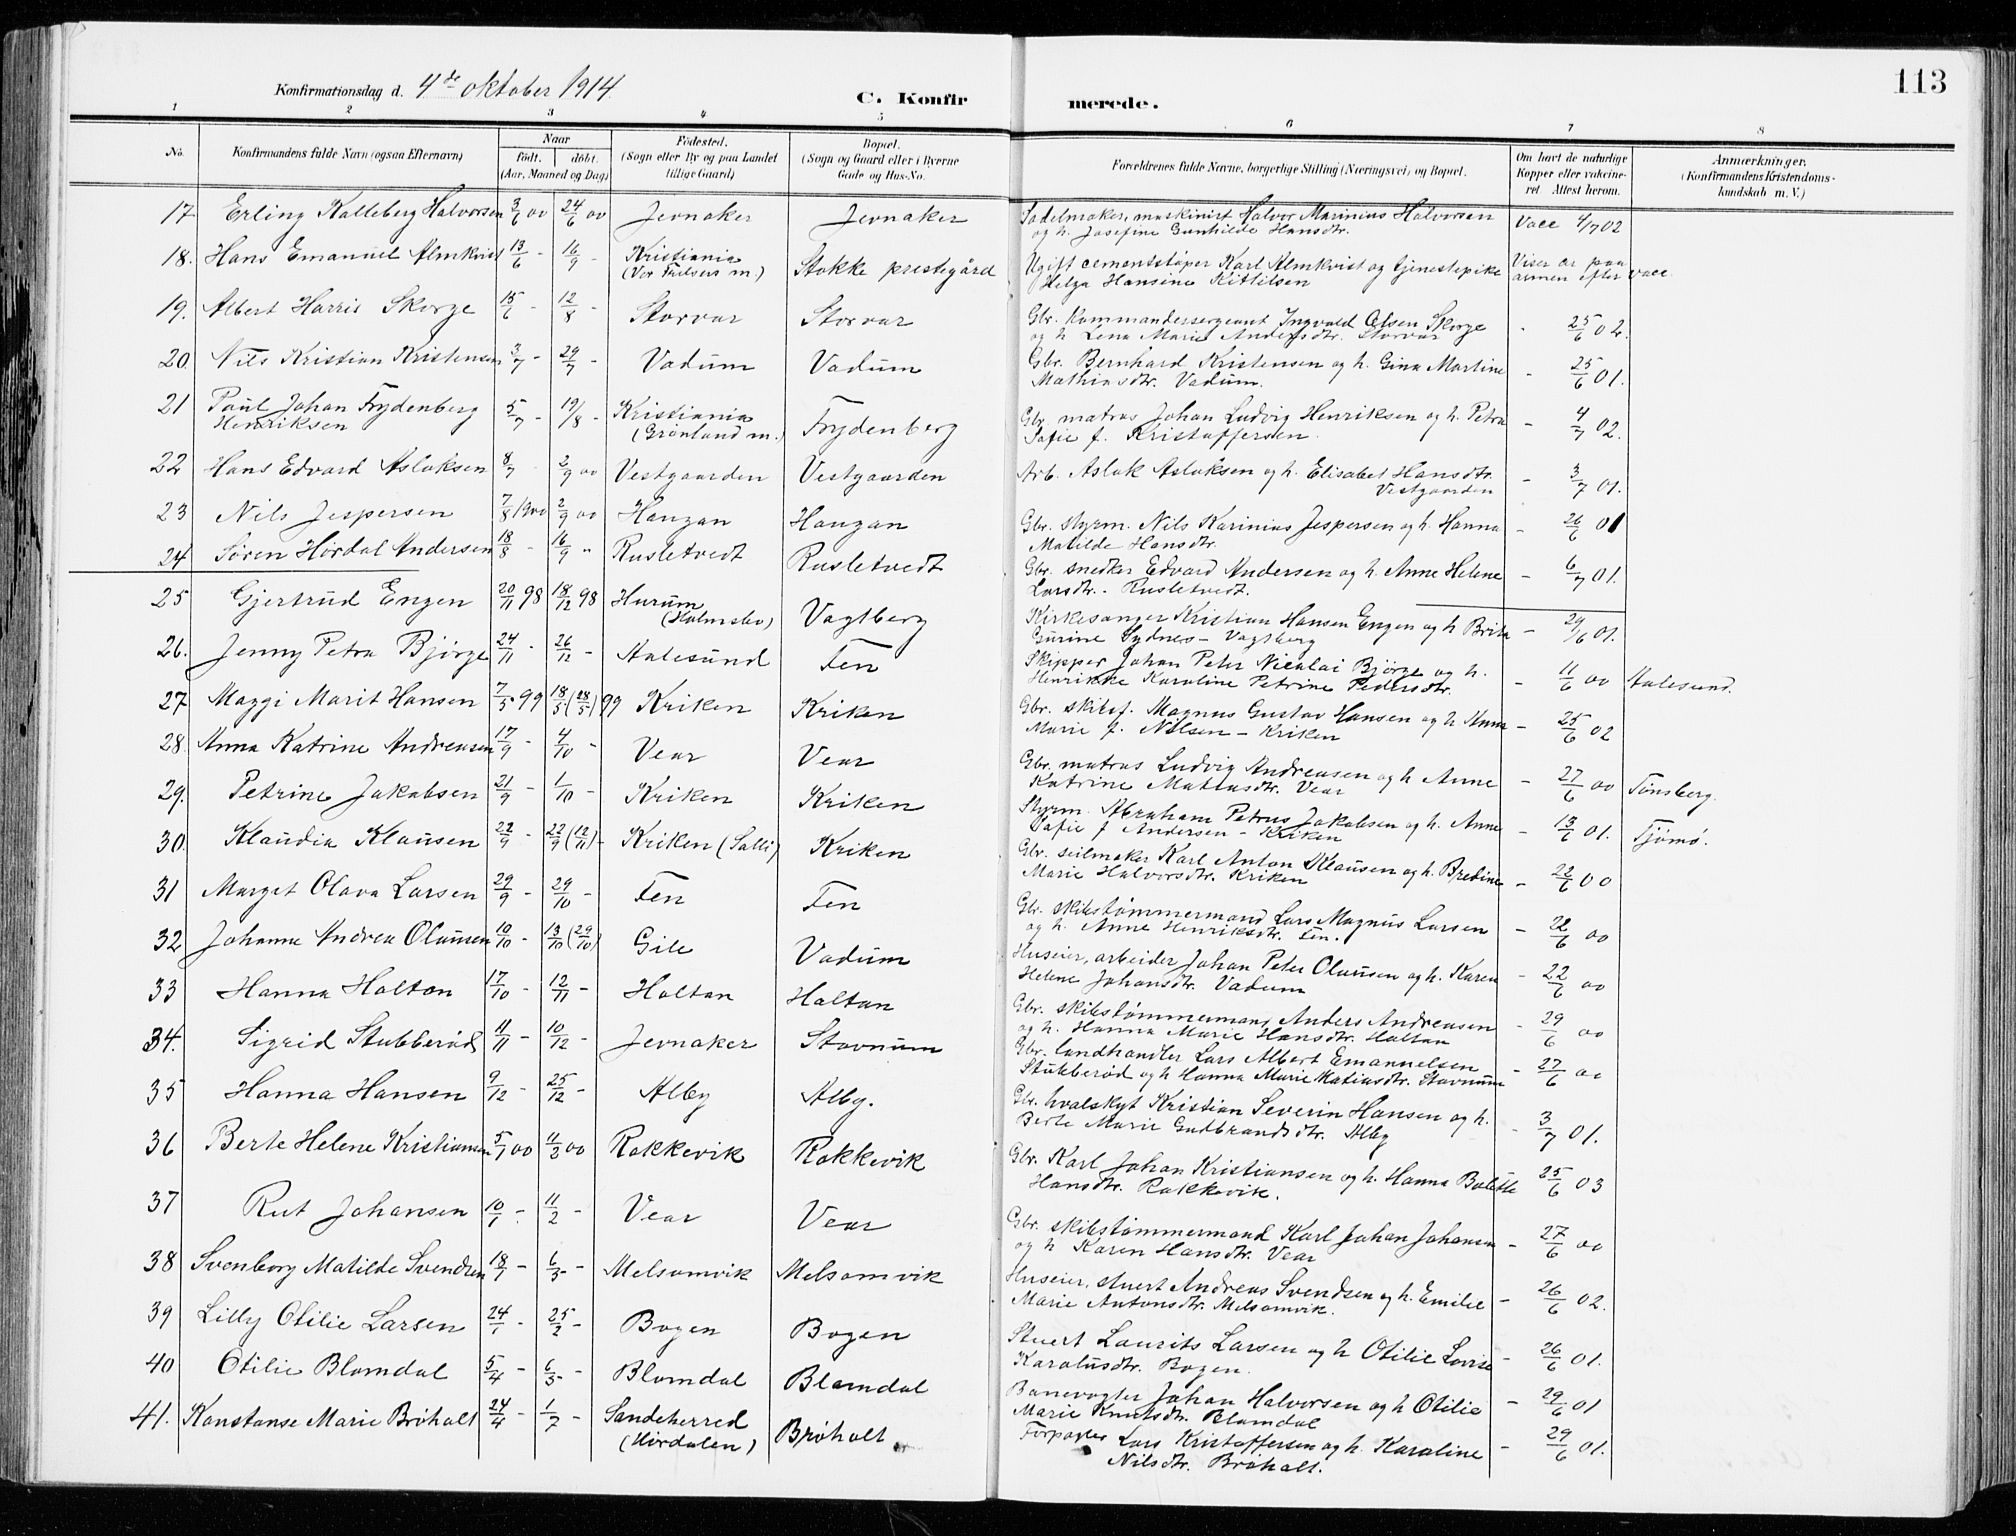 113
Konfirmationsdag d. 4de oktober 1914
C. Konfirmerede.
1 2 3 4 5 6 7 8
No. | Konfirmandens fulde Navn (ogsaa Efternavn) | Naar født. døbt. (Aar, Maaned og Dag) | Fødested. (Sogn eller By og paa Landet tillige Gaard) | Bopæl. (Sogn og Gaard eller i Byerne Gade og Hus-No. | Forældrenes fulde Navne, borgerlige Stilling (Næringsvei) og Bopæl. | Om havt de naturlige Kopper eller vakcineret. Attest herom. | Anmærkninger. (Konfirmandens Kristendomskundskab m. V.)
17 Erling Kalleberg Halvorsen 3/6 00 24/6 00 Jevnaker Jevnaker Sadelmaker, maskinist Halvor Marinius Halvorsen og h. Josefine Gunhilde Hansdtr. Vacc 4/7 02
18. Hans Emanuel Almkvist 13/6 - 16/9 - Kristiania (Vor Frelsers m.) Stokke prestegård Ugift cementstøper Karl Almkvist og tjenestepike Helga Hansine Kittilsen Viser ar paa armen efter vacc.
19. Albert Harris Skorge 15/6 - 12/8 - Storvar Storvar Gbr. kommandersergeant Ingvald Olsen Skorge og h Lena Marie Andersdtr. Storvar - 25/6 02.
20. Nils Kristian Kristensen 3/7 - 29/7 - Vadum Vadum Gbr. Bernhard Kristensen og h. Gina Martine Mathiasdtr. Vadum. - 25/6 01.
21 Paul Johan Frydenberg Henriksen 5/7 - 19/8 - Kristiania (Grønland m.) Frydenberg Gbr. matros Johan Ludvig Henriksen og h. Petra Sofie f. Kristoffersen. - 4/7 02.
22 Hans Edvard Aslaksen 8/7 - 2/9 00 Vestgaarden Vestgaarden Arb. Aslak Aslaksen og h. Elisabet Hansdtr. Vestgaarden - 3/7 01.
23 Nils Jespersen 7/8 1900 2/9 00 Haugan Haugan Gbr. styrm. Nils Karinius Jespersen og h. Hanna Matilde Hansdtr. - 26/6 01
24 Søren Hørdal Andersen 18/8 - 16/9 - Rusletvedt Rusletvedt Gbr. snedker Edvard Andersen og h. Anne Helene Larsdtr. Rusletvedt. - 6/7 01.
25 Gjertrud Engen 20/11 98 18/12 98 Hurum (Holmsbo) Vagtberg Kirkesanger Kristian Hansen Engen og h Brita Gurine Sydnes - Vagtberg - 29/6 01.
26. Jenny Petra Bjørge 24/11 - 26/12 - Aalesund Fen Skipper Johan Peter Nicolai Bjørge og h. Henrikke Karoline Petrine Pedersdtr. - 11/6 00 Aalesund.
27 Maggi Marit Hansen 7/5 99 18/5 (28/5) 99 Kriken Kriken Gbr. skibsf. Magnus Gustav Hansen og h. Anna Marie f. Nilsen - Kriken - 25/6 02
28. Anna Katrine Andreasen 17/9 - 4/10 - Vear Vear Gbr. matros Ludvig Andreasen og h Anne Katrine Matiasdtr. Vear - 27/6 00 Tønsberg.
29. Petrine Jakobsen 21/9 - 1/10 - Kriken Kriken Styrm. Abraham Petrus Jakobsen og h. Anne Sofie f Andersen - Kriken - 13/6 01. Tjømø.
30. Klaudia Klausen 22/9 22/9 (12/11) - Kriken (Solli) Kriken Gbr. seilmaker Karl Anton Klausen og h. Bredine Marie Halvorsdtr. Kriken - 22/6 00
31 Margit Olava Larsen 29/9 - 29/10 - Fen Fen Gbr. skibstømmermand Lars Magnus Larsen og h. Anne Henriksdtr. Fen. - 22/6 00
32 Johanne Andrea Olausen 10/10 - 13/10 (29/10) Gile Vadum Huseier, arbeider Johan Peter Olausen og h. Karen Helene Johansdtr. Vadum - 22/6 00
33 Hanna Holtan 17/10 - 12/11 - Holtan Holtan Gbr. skibstømmermand Anders Andreasen og h. Hanna Marie Hansdtr. Holtan - 29/6 00
34. Sigrid Stubberød 11/11 10/12 - Jevnaker Stavnum Gbr. landhandler Lars Albert Emanuelsen Stubberød og h Hanna Marie Matiasdtr. Stavnum - 27/6 00
35 Hanna Hansen 9/12 - 25/12 - Alby Alby. Gbr. hvalskyt Kristian Severin Hansen og h. Berte Marie Gudbrandsdtr. Alby - 3/7 01.
36 Berte Helene Kristiansen 5/1 00 11/2 00 Rakkevik Rakkevik Gbr. Karl Johan Kristiansen og h. Hanna Bolette Hansdtr. Rakkevik. 25/6 03
37 Rut Johansen 10/1 - 11/2 - Vear Vear Gbr. skibstømmermand Karl Johan Johansen og h Karen Hansdtr. Vear - 27/6 00
38 Svenborg Matilde Svendsen 18/1 - 6/3 - Melsomvik Melsomvik Huseier, stuert Andreas Svendsen og h. Emilie Marie Antonsdtr. Melsomvik. - 26/6 02.
39 Lilly Otilie Larsen 24/1 - 25/2 - Bogen Bogen Stuert Laurits Larsen og h Otilie Lovise Karolusdtr. Bogen. - 26/6 01.
40 Otilie Blomdal 5/4 - 6/5 - Blomdal Blomdal Banevogter Johan Halvorsen og h Otilie Marie Knutsdtr. Blomdal - 29/6 01
41. Konstanse Marie Brøholt 24/4 - 1/7 - Sandeherred (Hørdalen) Brøholt Forpagter Lars Kristoffersen og h. Karoline Nilsdtr. Brøholt. - 29/6 01.